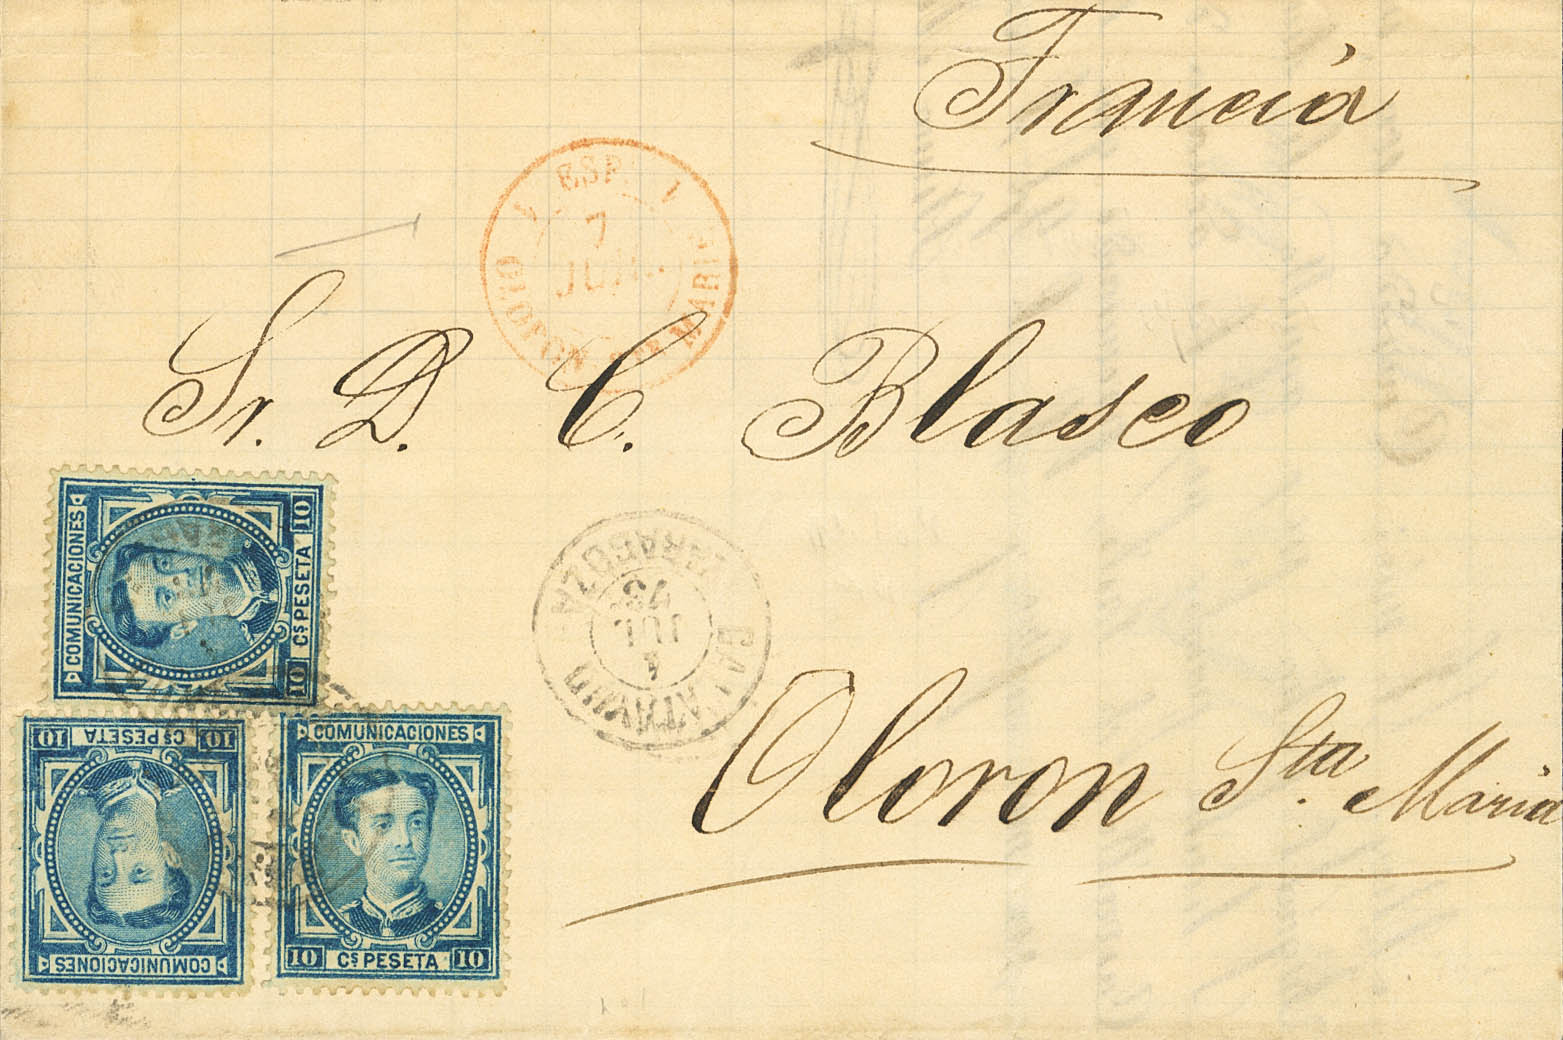 Francia
ESP.
7
JUIL
OLORON STE MARIE
Sr. D. C. Blasco
ZARAGOZA
JUL
CALATAYUD
Oloron Sta. Maria
COMUNICACIONES
10 Cs PESETA 10
COMUNICACIONES
10 Cs PESETA 10
COMUNICACIONES
10 Cs PESETA 10